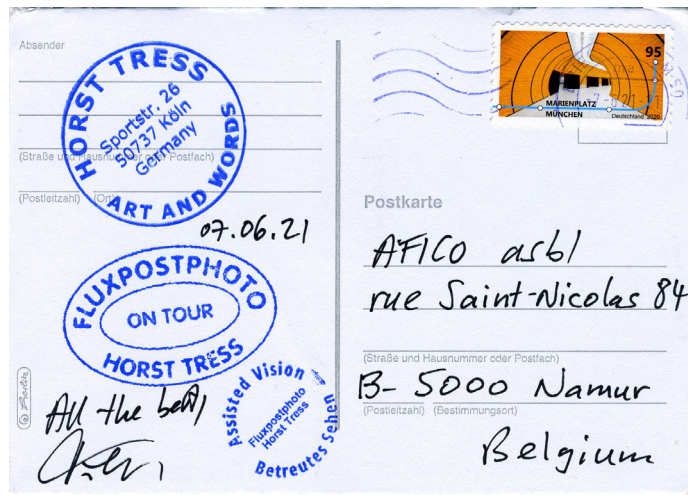 Absender
HORST TRESS
Sportstr. 26
50737 Köln
Germany
ART AND WORDS
(Straße und Hausnummer oder Postfach)
(Postleitzahl) (Ort)
07.06.21
FLUXPOSTPHOTO
ON TOUR
HORST TRESS
All the best,
Assisted Vision
Fluxpostphoto
Horst Tress
Betreutes Sehen
95
MARIENPLATZ
MÜNCHEN
Deutschland 2020
Postkarte
AFICO asbl
rue Saint-Nicolas 84
(Straße und Hausnummer oder Postfach)
B- 5000 Namur
(Postleitzahl) (Bestimmungsort)
Belgium